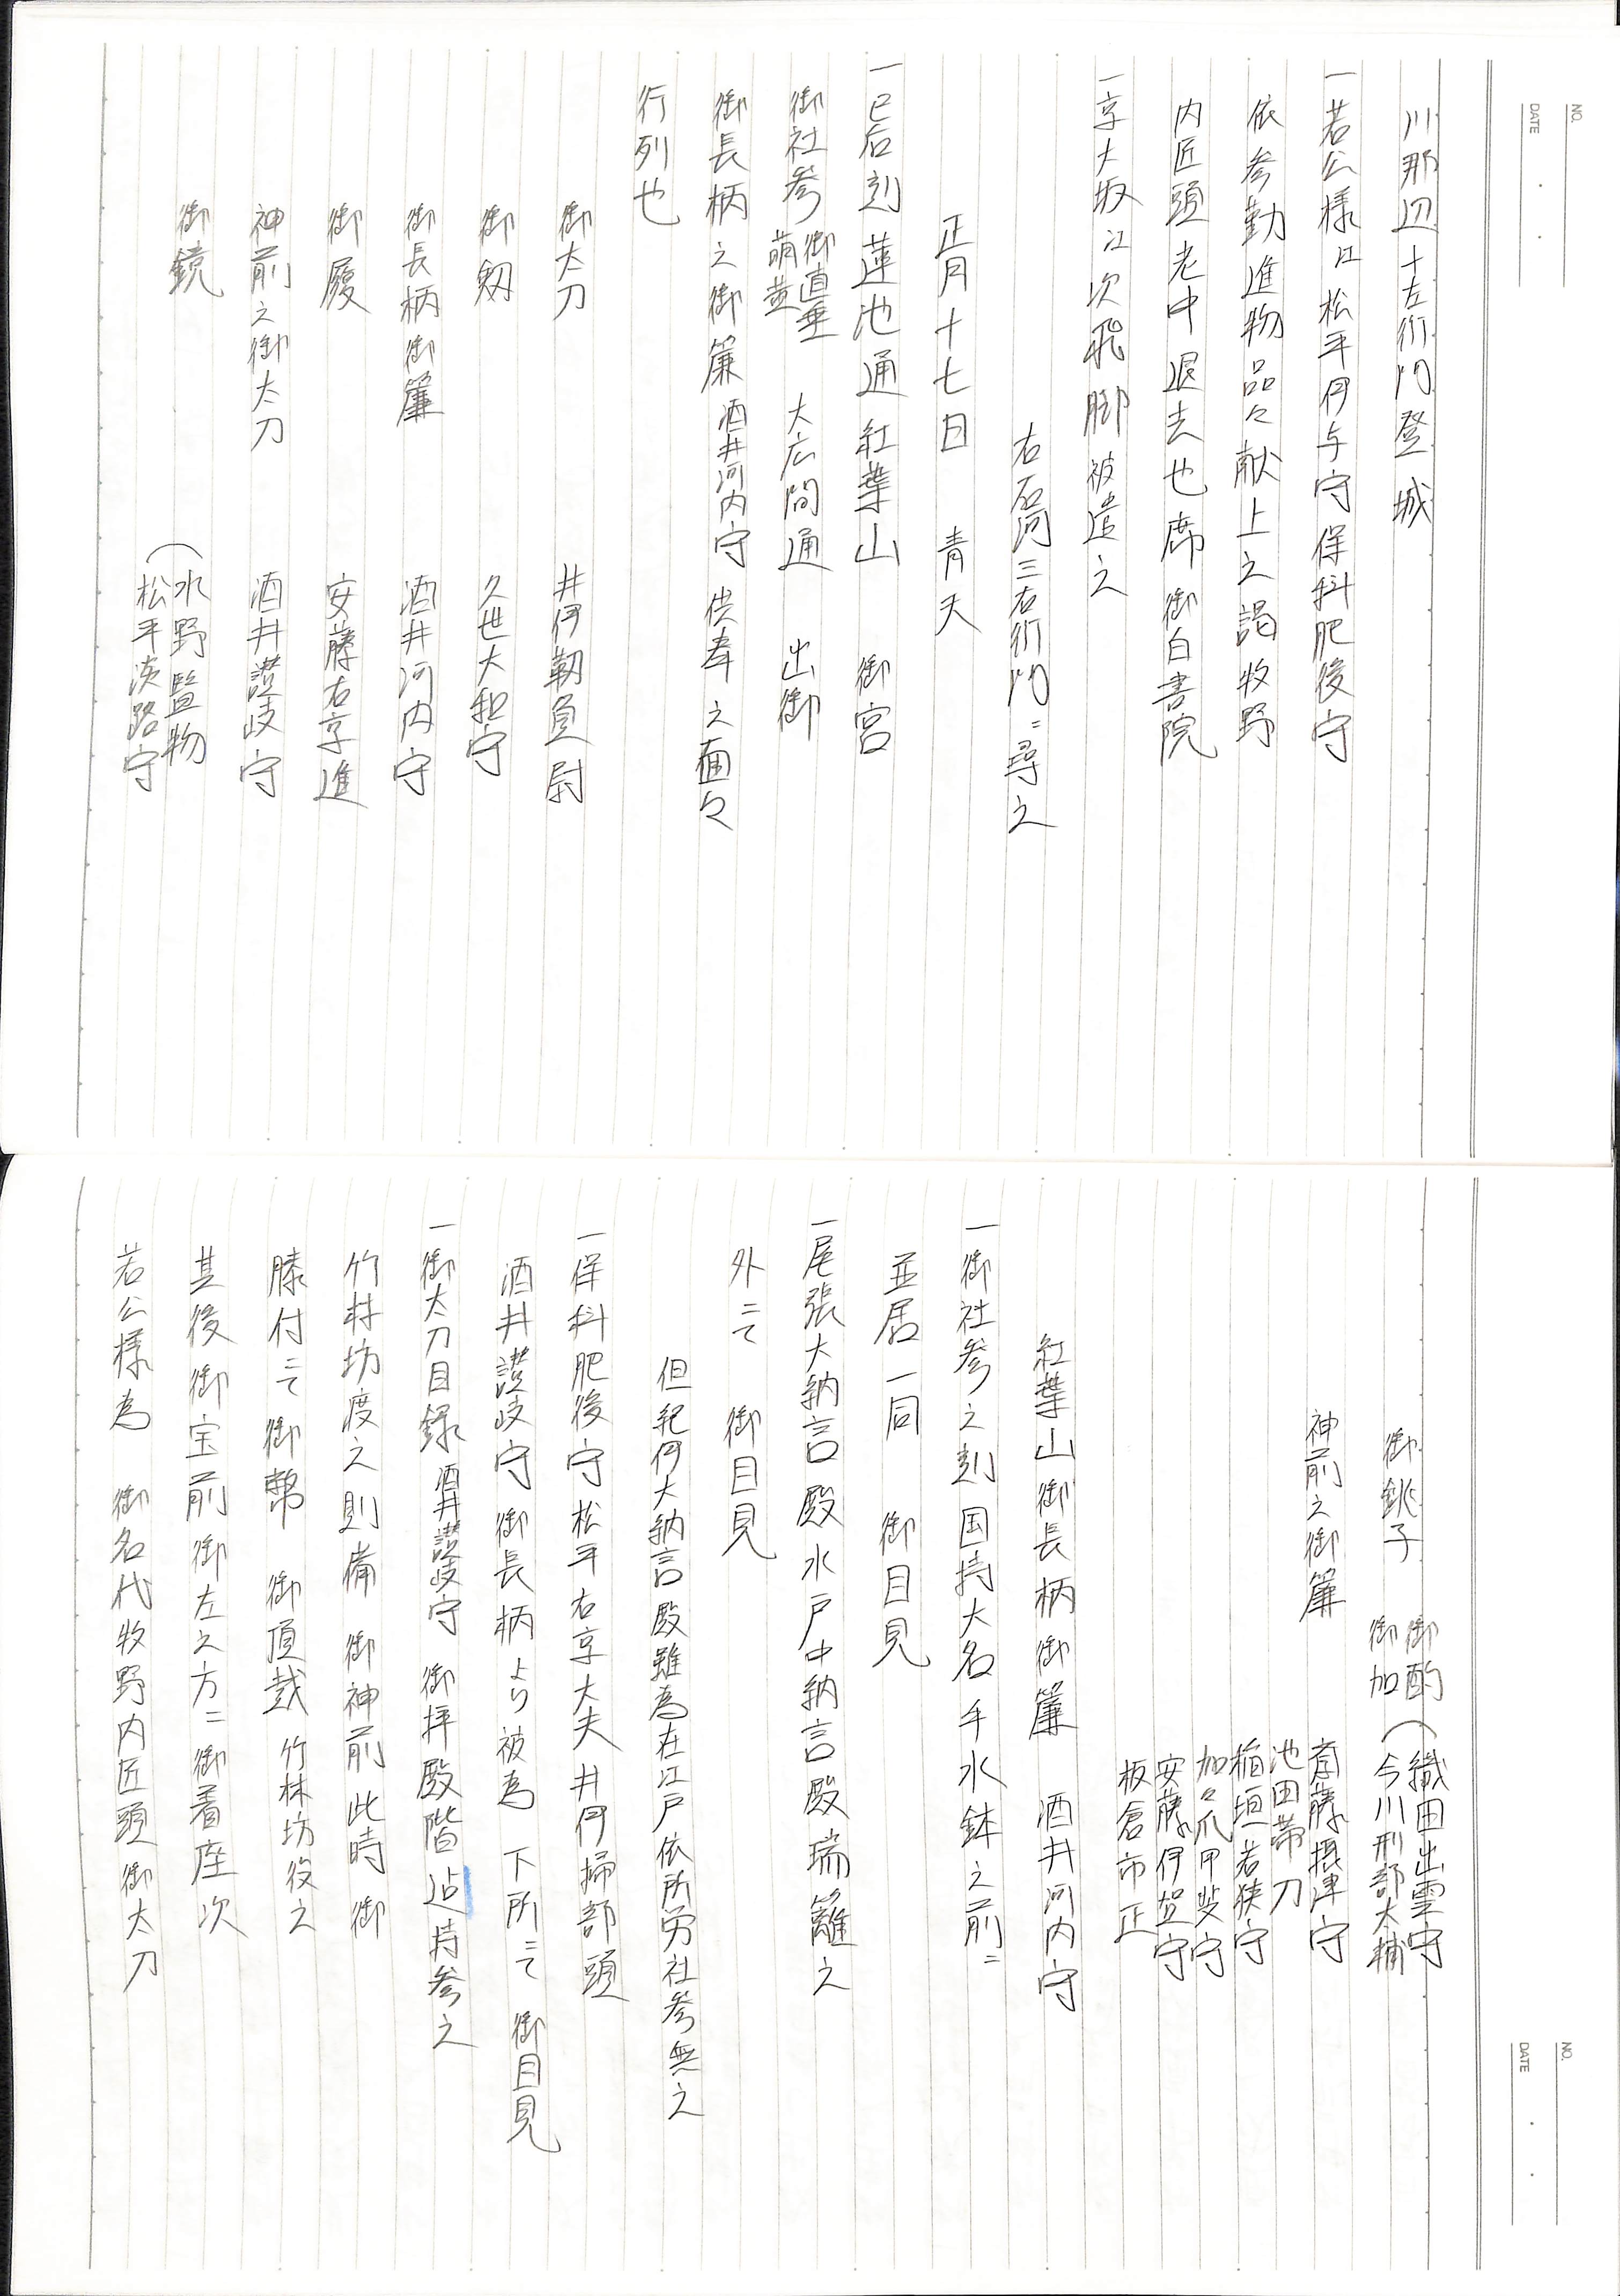 NO.
DATE
川那辺十左衛門登城
一若公様江松平伊与守保科肥後守
依参勤進物品々献上之謁牧野
内匠頭老中退去也席御白書院
一京大坂江次飛脚被遣之
右石河三右衛門ニ尋之
正月十七日 青天
一巳后刻蓮池通紅葉山 御宮
御社参 御直垂 萌黄 大広間通 出御
御長柄之御簾 酒井河内守 供奉之面々
行列也
御太刀 井伊靭負尉
御剱 久世大和守
御長柄御簾 酒井河内守
御履 安藤右京進
神前之御太刀 酒井讃岐守
御鏡 (水野監物
松平淡路守
NO.
DATE
御銚子 御酌 (織田出雲守
御加 今川刑部大輔
神前之御簾 斎藤摂津守
池田帯刀
稲垣若狭守
加々爪甲斐守
安藤伊賀守
板倉市正
紅葉山御長柄御簾 酒井河内守
一御社参之刻国持大名手水鉢之前ニ
並居一同 御目見
一尾張大納言殿水戸中納言殿瑞籬之
外ニて 御目見
但紀伊大納言殿雖為在江戸依所労社参無之
一保科肥後守松平右京大夫井伊掃部頭
酒井讃岐守御長柄より被為 下所ニて 御目見
一御太刀目録 酒井讃岐守 御拝殿階迠持参之
竹林坊度之則備 御神前此時 御
膝付ニて御幣 御頂戴 竹林坊役之
其後御宝前御左之方ニ御着座次
若公様為 御名代牧野内匠頭御太刀